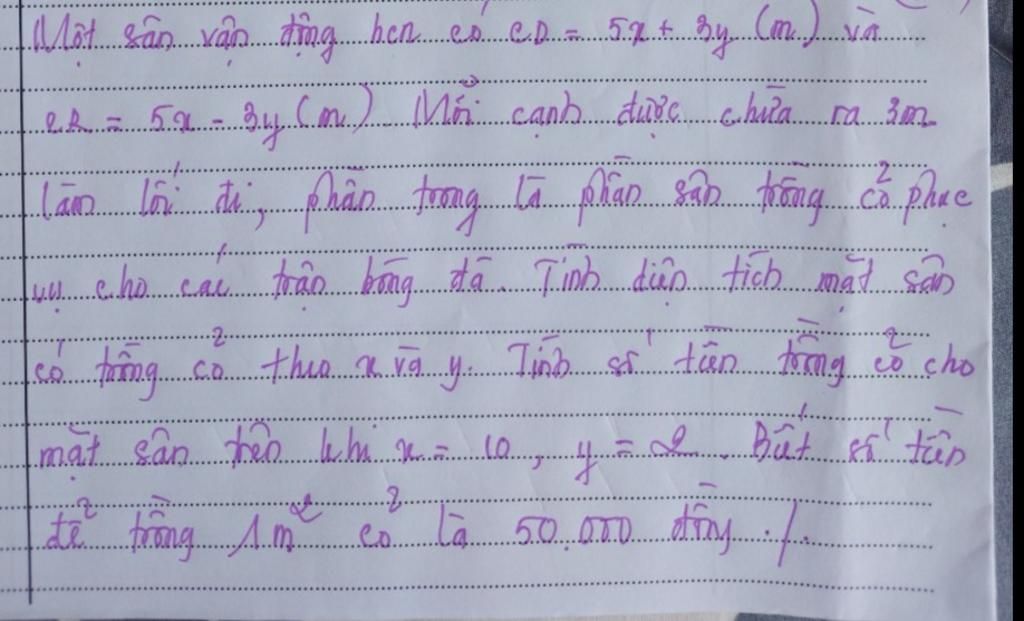 Một sân vận động hcn có CD = 5x + 3y (m) và
CR = 5x - 3y (m) Mỗi cạnh được chừa ra 3m
làm lối đi, phần trong là phần sân trồng cỏ phục
vụ cho các trận bóng đá. Tính diện tích mặt sân
có trồng cỏ theo x và y. Tính số tiền trồng cỏ cho
mặt sân trên khi x = 10, y = 2. Biết số tiền
để trồng 1m² cỏ là 50.000 đồng ./.